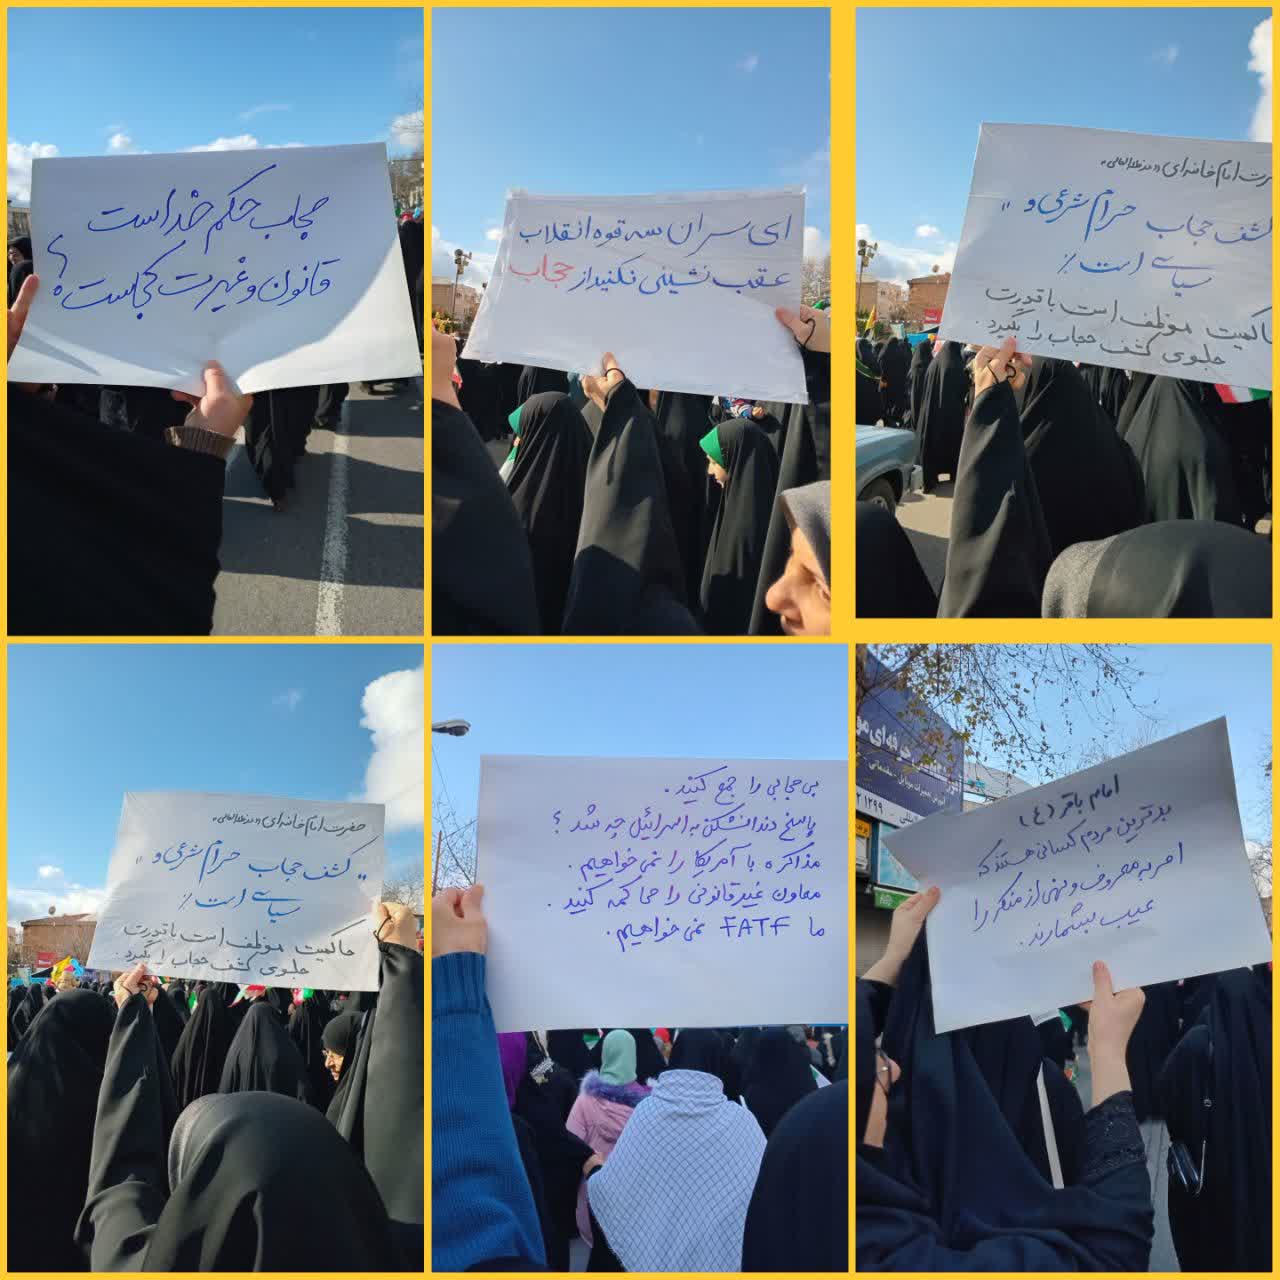 حجاب حکم خداست
قانون و غیرت کجاست؟
ای سران سه قوه انقلاب
عقب نشینی نکنید از حجاب
حضرت امام خامنه‌ای «مدظله العالی»
کشف حجاب حرام شرعی و "
سیاسی است٪
حاکمیت موظف است با قدرت
جلوی کشف حجاب را بگیرد.
حضرت امام خامنه‌ای «مدظله العالی»
,, کشف حجاب حرام شرعی و "
سیاسی است٪
حاکمیت موظف است با قدرت
جلوی کشف حجاب را بگیرد.
بی حجابی را جمع کنید.
پاسخ دندانشکن به اسرائیل چه شد؟
مذاکره با آمریکا را نمی خواهیم.
معاون غیرقانونی را محاکمه کنید.
ما FATF نمی خواهیم.
حرفه‌ای مو
آموزش تعمیرات موبایل - مقدماتی
۱۲۹۹
امام باقر (ع)
بدترین مردم کسانی هستند که
امر به معروف و نهی از منکر را
عیب بشمارند.